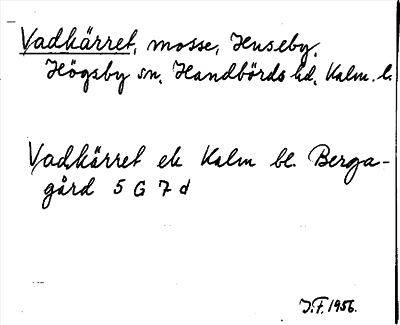 Vadkärret, mosse, Huseby.
Högsby sn. Handbörds hd. Kalm. l.
Vadkärret ek Kalm bl. Berga-
gård 5 G 7 d
J.F. 1956.